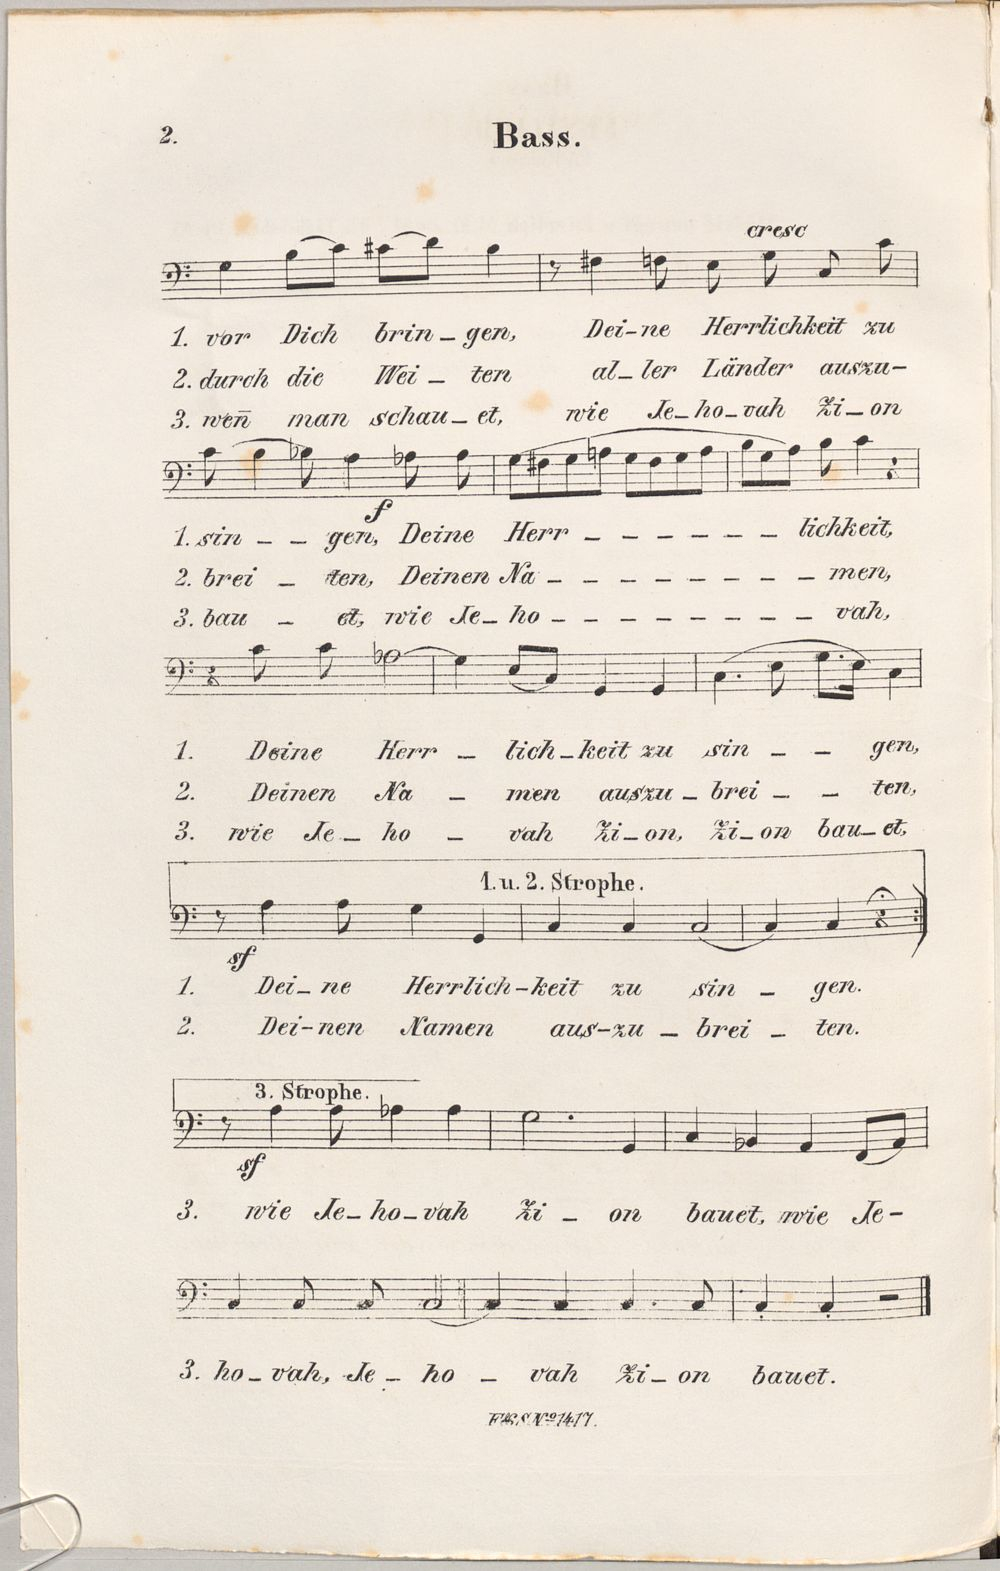 2.
Bass.
cresc
1. vor Dich brin - gen, Dei-ne Herrlichkeit zu
2. durch die Wei - ten al-ler Länder auszu-
3. wen̄ man schau-et, wie Je-ho-vah Zi-on
f
1. sin - - gen, Deine Herr - - - - - - - lichkeit,
2. brei - ten, Deinen Na - - - - - - - - men,
3. bau - et, wie Je-ho - - - - - - - - vah,
1. Deine Herr - lich-keit zu sin - - gen,
2. Deinen Na - men auszu-brei - - ten,
3. wie Je-ho - vah Zi-on, Zi-on bau-et,
1. u. 2. Strophe.
sf
1. Dei-ne Herrlich-keit zu sin - gen.
2. Dei-nen Namen aus-zu - brei - ten.
3. Strophe.
sf
3. wie Je-ho-vah Zi - on bauet, wie Je-
3. ho-vah, Je-ho - vah Zi-on bauet.
Nº 1417.